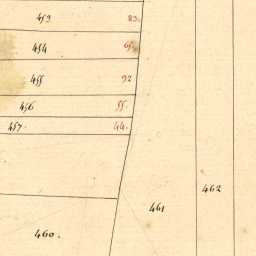 453 83.
454 65.
455 92
456 55.
457. 44.
462
461
460.